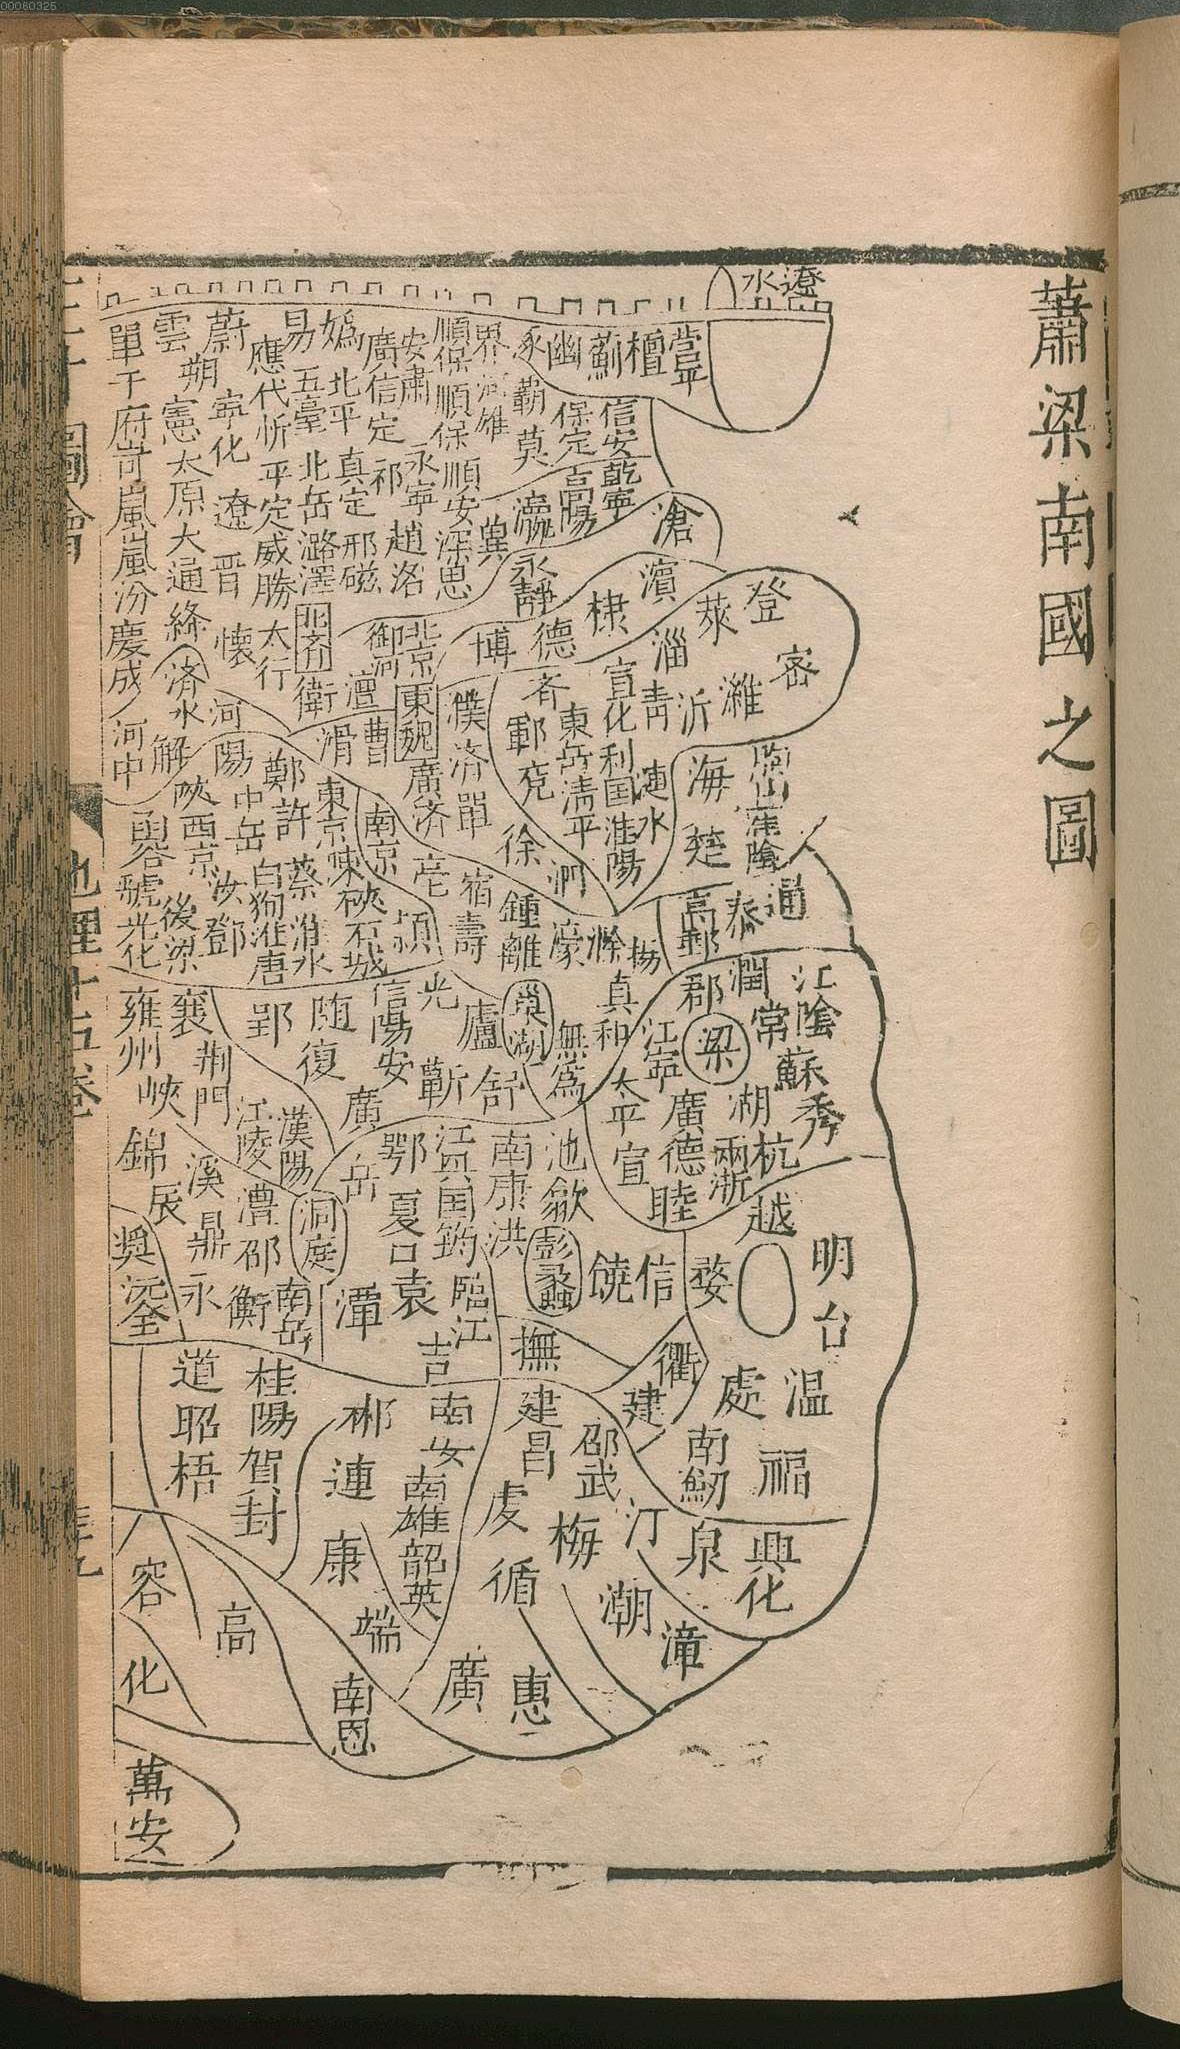 00060325
蕭梁南國之圖
遼水
營平
檀
薊
幽
涿
界河雄
順保順保順安深思
安肅
永寧
趙洛
廣信定祁
媯北平真定邢磁
易五臺北岳潞澤
應代忻平定威勝太行
蔚
寧化
遼
晉
懷
雲
朔
憲太原大通絳
單于府岢嵐嵐汾慶成
河中
霸
莫
保定
信安
乾寧
高陽
瀛
冀
永靜
滄
濱
棣
德
博
登
萊
密
淄
濰
青
沂
北京
御河
澶
北齊
衛
東魏
濟水
河陽
解
滑
曹
濮
濟
單
廣濟
齊
鄆
兗
東岳清平
宣化利国淮陽
漣水
海
楚
淮陰
徐
泗
鄭
許
中岳
東京
南京
亳
宿
壽
潁
陝西京
汝
鄧
蔡淮水
虢光化
後梁
白狗淮唐
硤石城
鍾離
濠
滁
揚
高郵
泰
通
雍州
襄
荆門
峽
郢
随
復
信陽
安
光
廬
巢湖
無為
真
和
蘄
舒
廣
江陵
漢陽
郡
潤
江陰
梁
常
蘇
江寧
太平
廣德
湖
秀
宣
兩浙
杭
睦
越
明
台
婺
錦
辰
溪
鼎
澧
邵
洞庭
岳
鄂
夏口
江
南康
洪
池
歙
彭蠡
饒
信
獎
沅
全
永
衡
南岳
潭
袁
筠
臨江
吉
撫
衢
建
處
温
道
昭
梧
桂陽
賀
封
郴
連
康
端
南安
南雄
韶
英
建昌
邵武
虔
梅
循
汀
南劒
福
泉
興化
潮
漳
容
高
化
南恩
廣
惠
萬安
圖會
地理十五卷